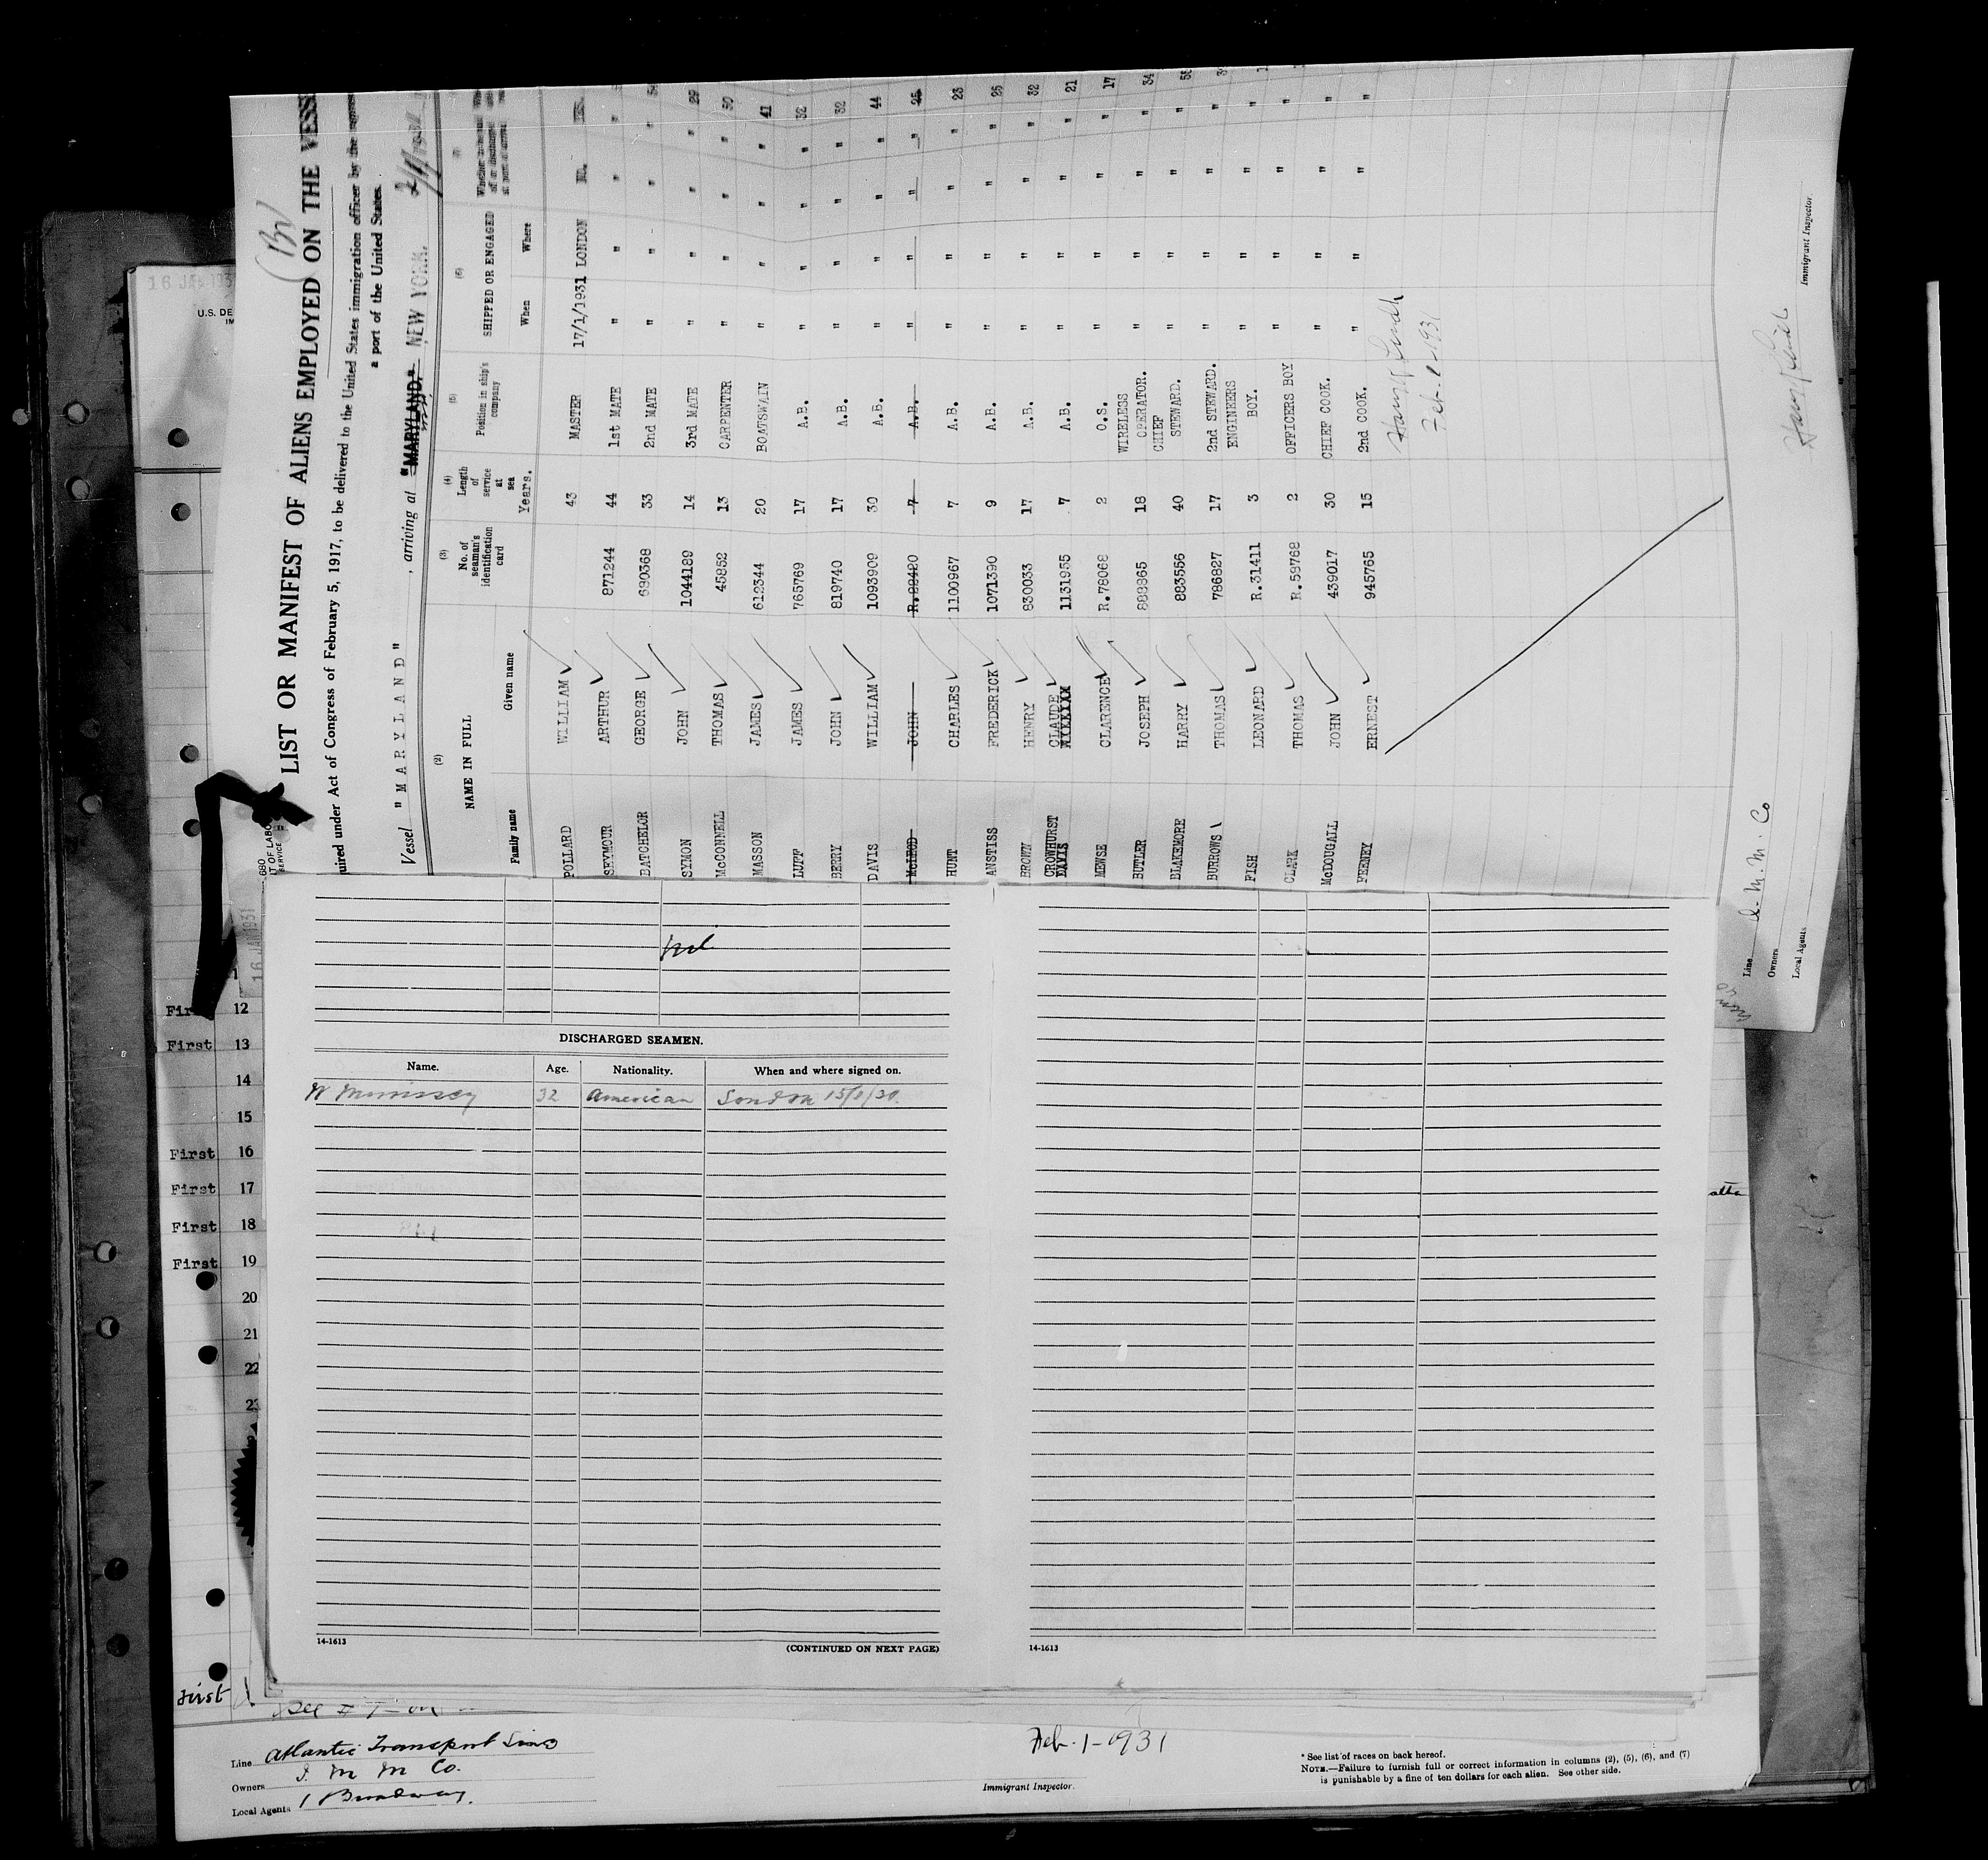 LIST OR MANIFEST OF ALIENS EMPLOYED ON THE VESSE
uired under Act of Congress of February 5, 1917, to be delivered to the United States immigration officer by the
a port of the United States.
Vessel "MARYLAND" , arriving at "MARYLAND." NEW YORK.
(2) (3) (4) (5) (6)
NAME IN FULL
Family name Given name
No. of seaman's identification card
Length of service at sea
Years.
Position in ship's company
SHIPPED OR ENGAGED
When Where
POLLARD WILLIAM 43 MASTER 17/1/1931 LONDON
SEYMOUR ARTHUR 871244 44 1st MATE " " " "
BATCHELOR GEORGE 690368 33 2nd MATE " " " "
SYMON JOHN 1044189 14 3rd MATE " " " " 29
McCONNELL THOMAS 45852 13 CARPENTER " " " " 50
MASSON JAMES 612344 20 BOATSWAIN " " " " 41
LUFF JAMES 765769 17 A.B. " " " " 32
BERRY JOHN 819740 17 A.B. " " " " 32
DAVIS WILLIAM 1093909 30 A.B. " " " " 44
McLEOD JOHN 7 A.B. " " " " 25
HUNT CHARLES 1100967 7 A.B. " " " " 23
ANSTISS FREDERICK 1071390 9 A.B. " " " " 26
BROWN HENRY 830033 17 A.B. " " " " 32
CROWHURST CLAUDE 1131955 7 A.B. " " " " 21
DAVIS
MEWSE CLARENCE R.78068 2 O.S. " " " " 17
BUTLER JOSEPH 888865 18 WIRELESS OPERATOR. " " " " 34
BLAKEMORE HARRY 883556 40 CHIEF STEWARD. " " " " 58
BURROWS THOMAS 786827 17 2nd STEWARD. " " " "
FISH LEONARD R.31411 3 ENGINEERS BOY. " " " "
CLARK THOMAS R.58768 2 OFFICERS BOY " " " "
McDOUGALL JOHN 439017 30 CHIEF COOK. " " " "
FEENEY ERNEST 945765 15 2nd COOK. " " " "
Feb-1-1931
Line I. M. M. Co
Owners
Local Agents
Immigrant Inspector.
16 JAN 1931
U.S. DE
First 12
First 13
14
15
First 16
First 17
First 18
First 19
20
21
22
23
First
Nil
DISCHARGED SEAMEN.
Name. Age. Nationality. When and where signed on.
W Morrissey 32 American London
14-1613 (CONTINUED ON NEXT PAGE)
14-1613
Line Atlantic Transport Line
Owners I. M M Co.
Local Agents 1 Broadway.
Feb.1-1931
Immigrant Inspector.
* See list of races on back hereof.
NOTE.—Failure to furnish full or correct information in columns (2), (5), (6), and (7)
is punishable by a fine of ten dollars for each alien. See other side.